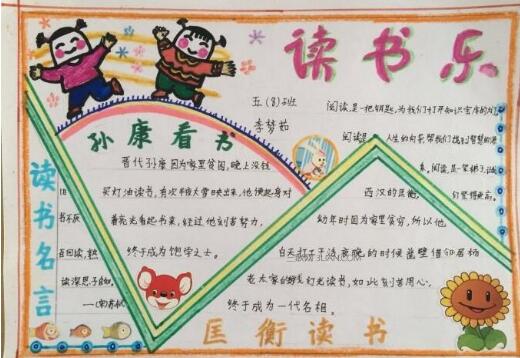 读书乐
五(8)班
李梦茹
阅读,是一把钥匙,为我们打开知识宝库的大门
阅读是
人生的向导,帮我们找到智慧的
阅读,是一架梯子,
孙康看书
晋代孙康因为家里贫困,晚上没钱
买灯油读书,有次半夜大雪映出来,他便起身对
着亮光看起书来,经过他刻苦努力,
终于成为饱学之士。
读书名言
旧
书不厌
百回读,熟
读深思子自知。
西汉的匡衡,
幼年时因为家里贫穷,所以他
白天打工干活,夜晚的时候凿壁借邻居杨
老太家的灯光读书,如此刻苦用心,
终于成为一代名相。
匡衡读书